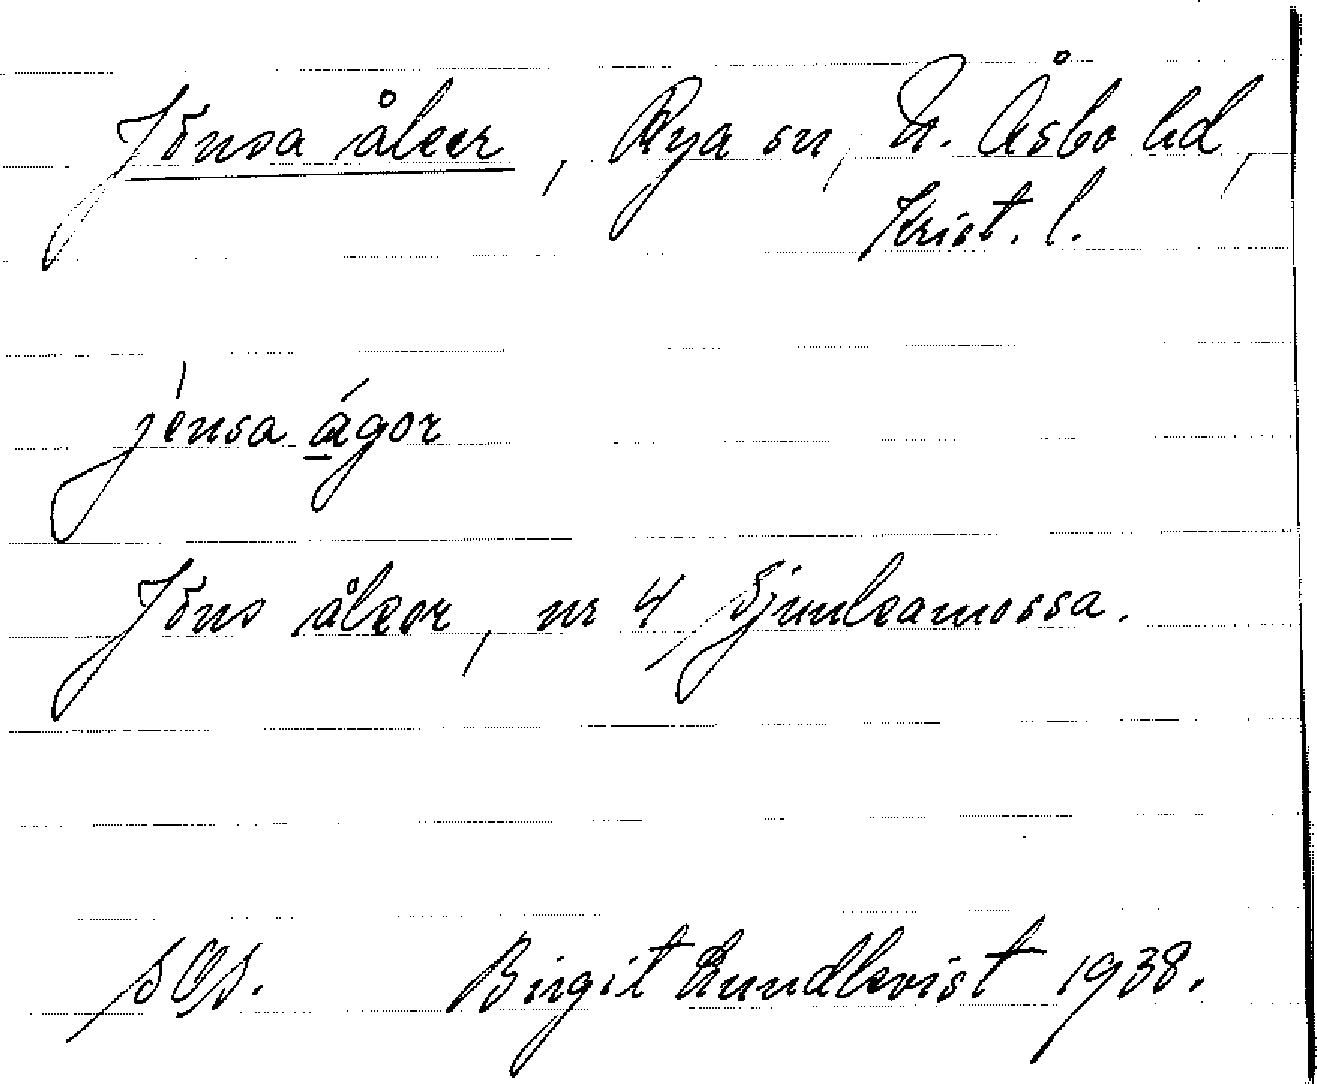 Jönsa åker, Rya sn, N. Åsbo hd,
Krist. l.
jénsa ágor
Jöns åkrar, nr 4 Sjunkamossa.
SOS. Birgit Lundkvist 1938.